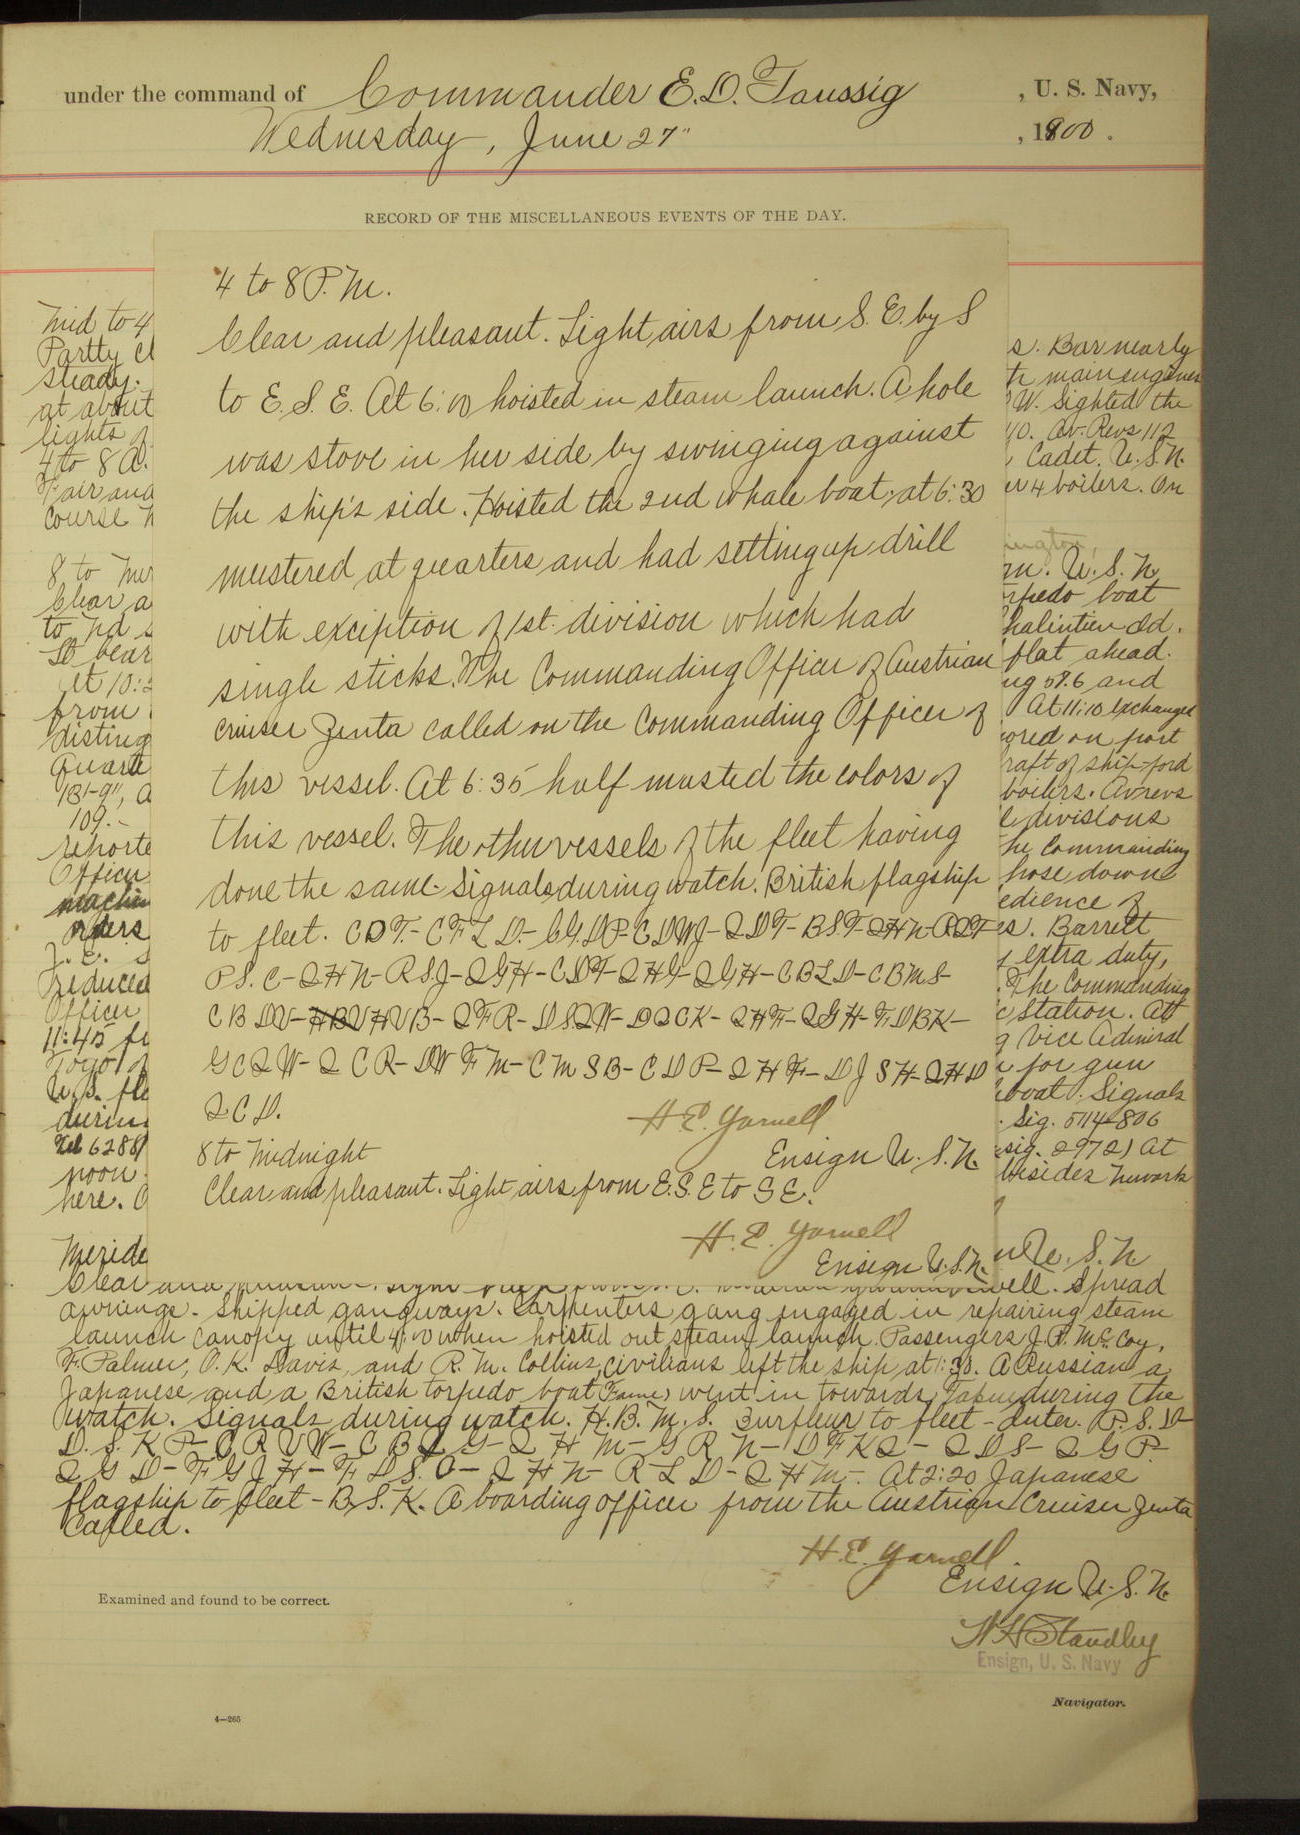 under the command of Commander E.D. Taussig , U. S. Navy,
Wednesday, June 27" , 1900 .
RECORD OF THE MISCELLANEOUS EVENTS OF THE DAY.
4 to 8 P.M.
Clear and pleasant. Light airs from S. E. by S
to E. S. E. At 6:00 hoisted in steam launch. A hole
was stove in her side by swinging against
the ship's side. Hoisted the 2nd whale boat, at 6:30
mustered at quarters and had setting up drill
with exception of 1st. division which had
single sticks. The Commanding Officer of Austrian
cruiser Zenta called on the Commanding Officer of
this vessel. At 6:35 half masted the colors of
this vessel. The other vessels of the fleet having
done the same. Signals during watch. British flagship
to fleet. C D T.- C F L D.- C G. D P- C D W J- Q D T- B S T- Q H N- R Q T-
P S. C- Q H N- R S J- Q G H- C D T- Q H G- Q G H- C B L D- C B M S-
C B D V- H B V H V B- Q F R- D S Q W- D Q C K- Q H F- Q G H- F D B K-
G C Q W- Q C R- D W F M- C M S B- C D P- Q H F- D J S H- Q H D
Q C D.
H. E. Yarnell
Ensign U. S. N.
8 to Midnight
Clear and pleasant. Light airs from E. S. E to S E.
H. E. Yarnell
Ensign U. S. N.
Mid to 4
Partly cl
steady.
at about
lights of
4 to 8 A.
Fair and
Course N
8 to Mer
Clear a
to
bear
At 10:
from
disting
quarte
13'-9", a
109.-
reporte
Officer
machin
orders
J. E. S
reduced
Officer
11:45
Togo of
U. S. fle
during
Tel 6288
noon.
here. O
Meride
s. Bar nearly
main engines
W. Sighted the
40. Av. Revs 112
Cadet. U. S. N.
4 boilers. On
ington,
gn. U. S. N
rpedo boat
halintien Id.
flat ahead.
ng 58.6 and
At 11:10 exchanged
ored on port
raft of ship-ford
boilers. Av revs
divisions
he Commanding
hose down
edience of
s. Barrett
extra duty,
. The Commanding
Station. At
g Vice Admiral
for gun
boat. Signals
Sig. 5114-806
sig. 2972) At
besides Newark
U. S. N
well. Spread
awnings. Shipped gangways. Carpenters gang engaged in repairing steam
launch canopy until 4:00 when hoisted out steam launch. Passengers J. P. McCoy,
F. Palmer, O. K. Davis, and R. M. Collins, civilians left the ship at 1:30. A Russian a
Japanese and a British torpedo boat (Fame) went in towards Taku during the
watch. Signals during watch. H. B. M. S. Barfleur to fleet - Inter. P. S. D-
D. S. K P- C R V W- C B Q G- Q H M- G R N- D F K Q- Q D S- Q G P-
Q G D- F G J H- F D S. C- Q H N- R L D- Q H M-. At 2:20 Japanese
flagship to fleet - B. S. K. A boarding officer from the Austrian Cruiser Zenta
called.
H. E. Yarnell.
Ensign U. S. N.
Examined and found to be correct.
W H Standley
Ensign, U. S. Navy
Navigator.
4—265